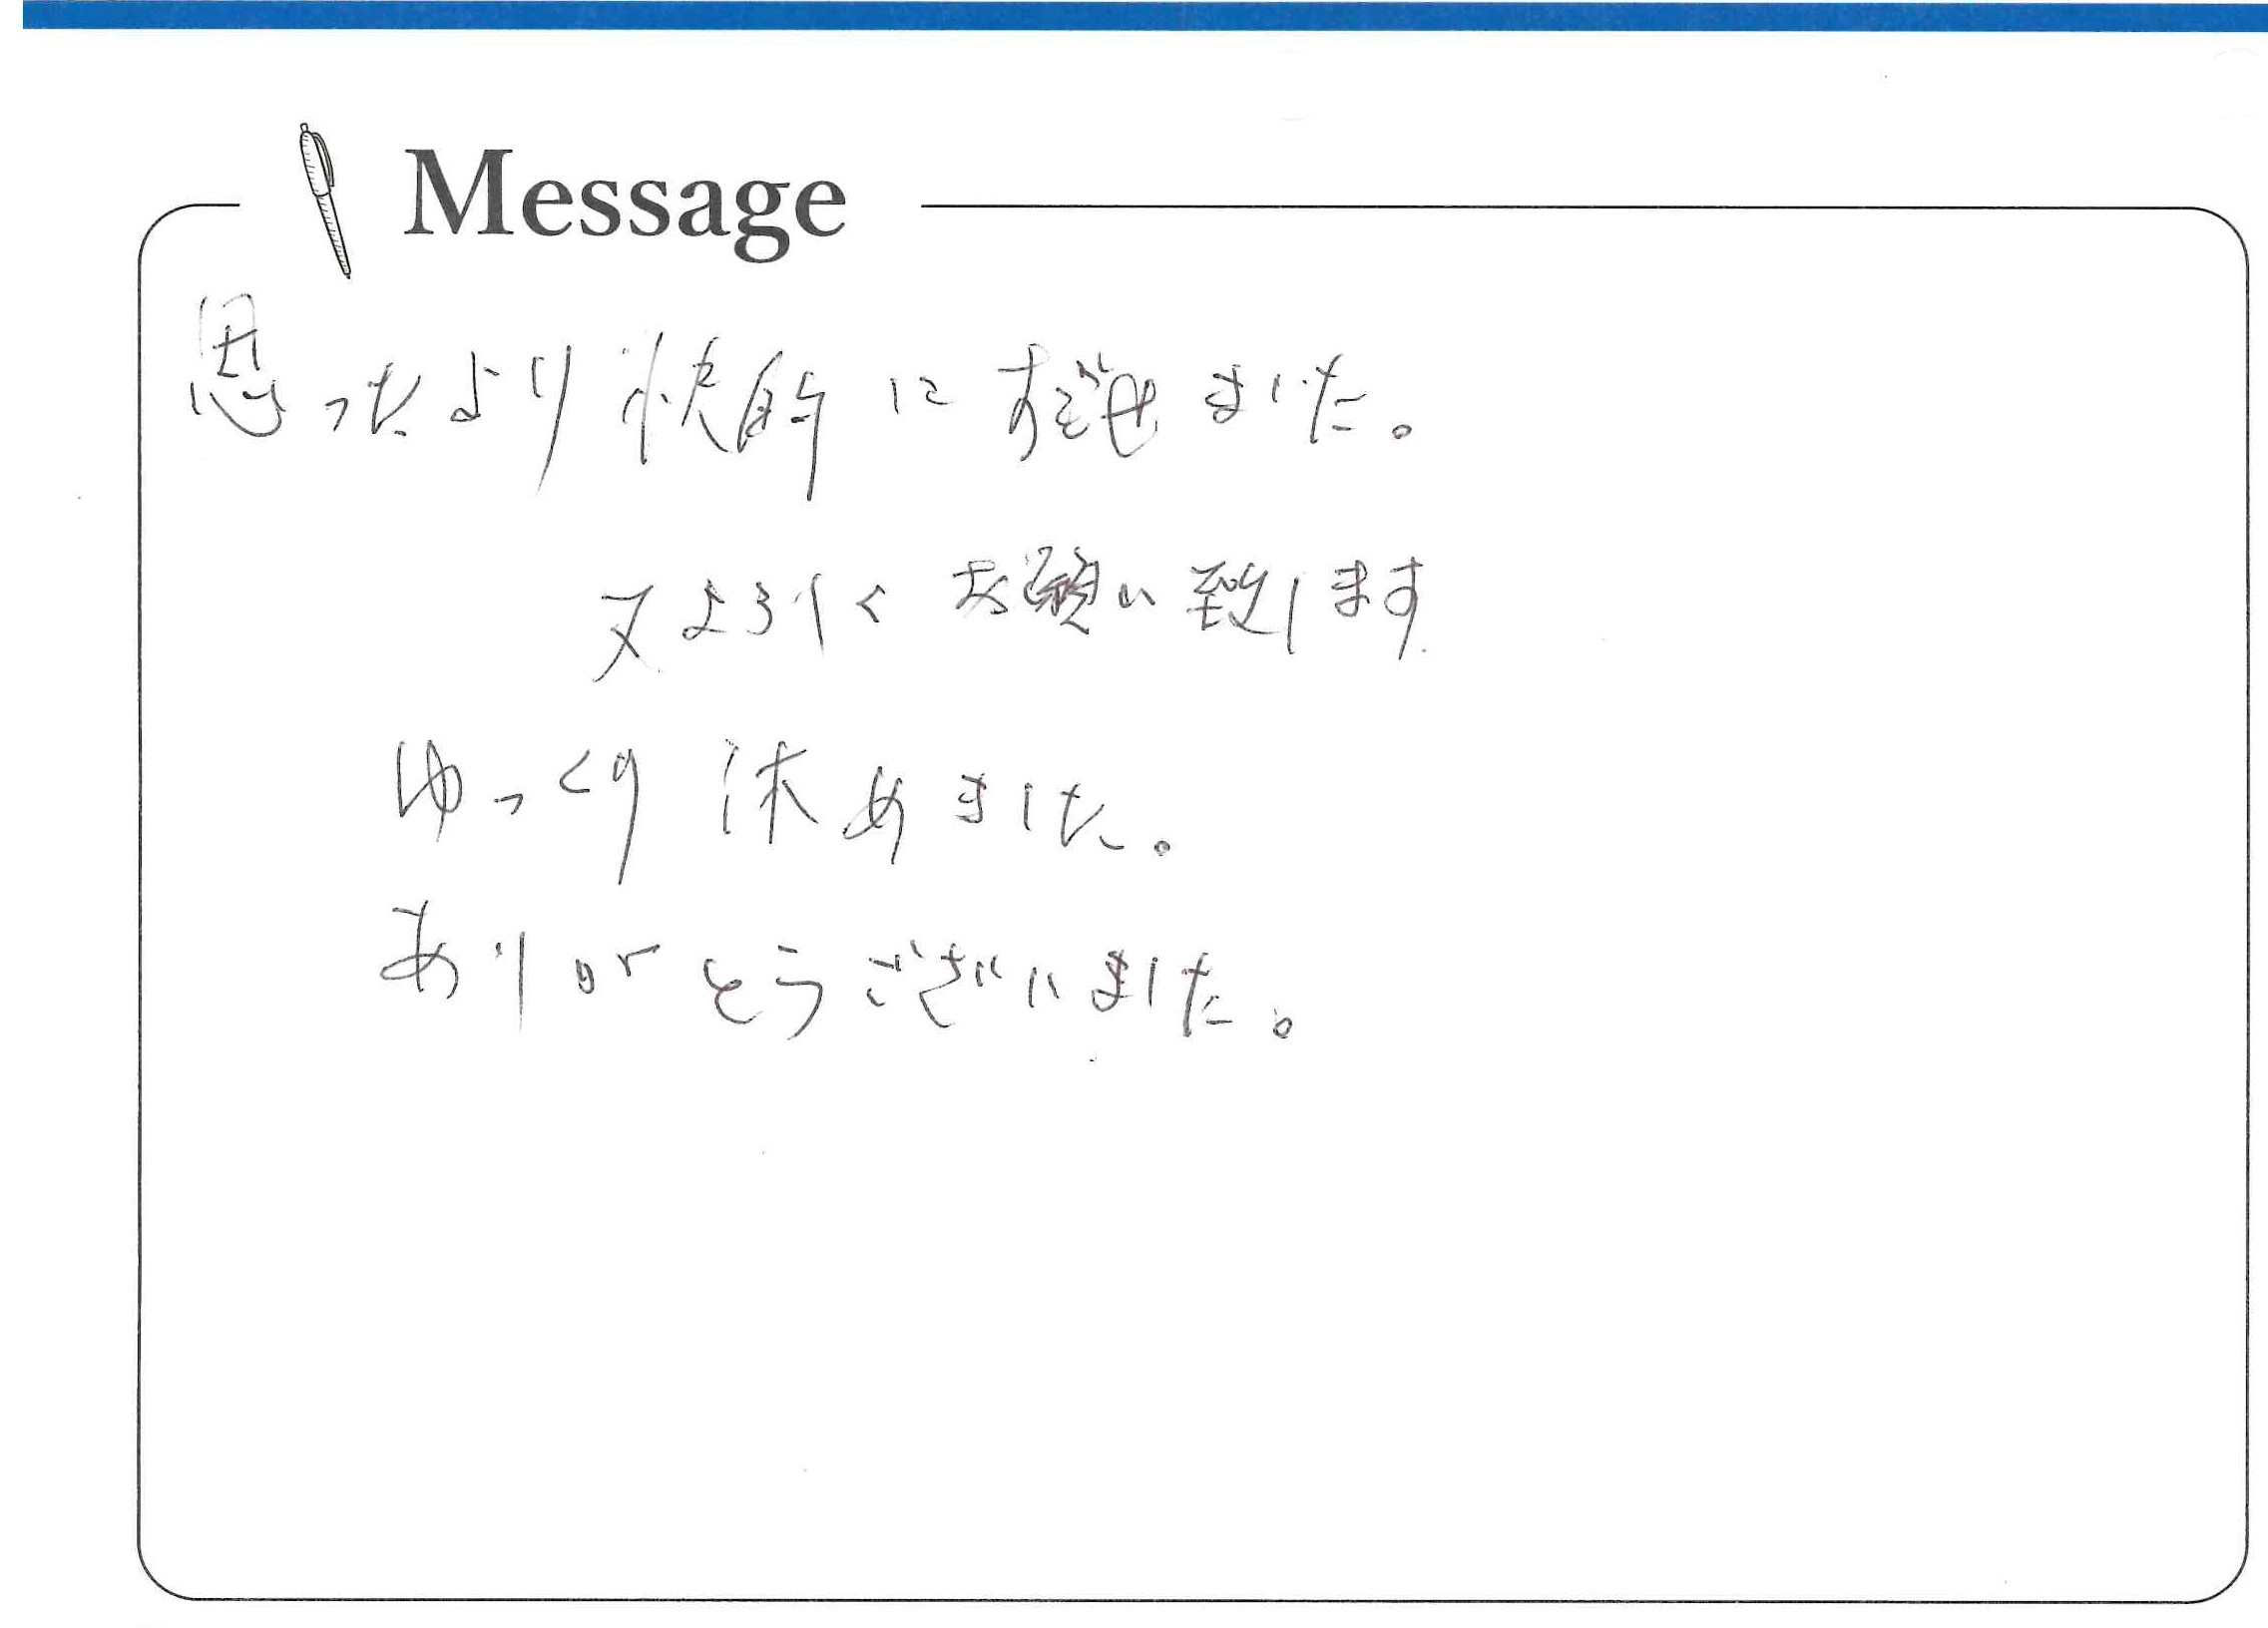 Message
思ったより快適にすごせました。
又よろしくお願い致します
ゆっくり休めました。
ありがとうございました。